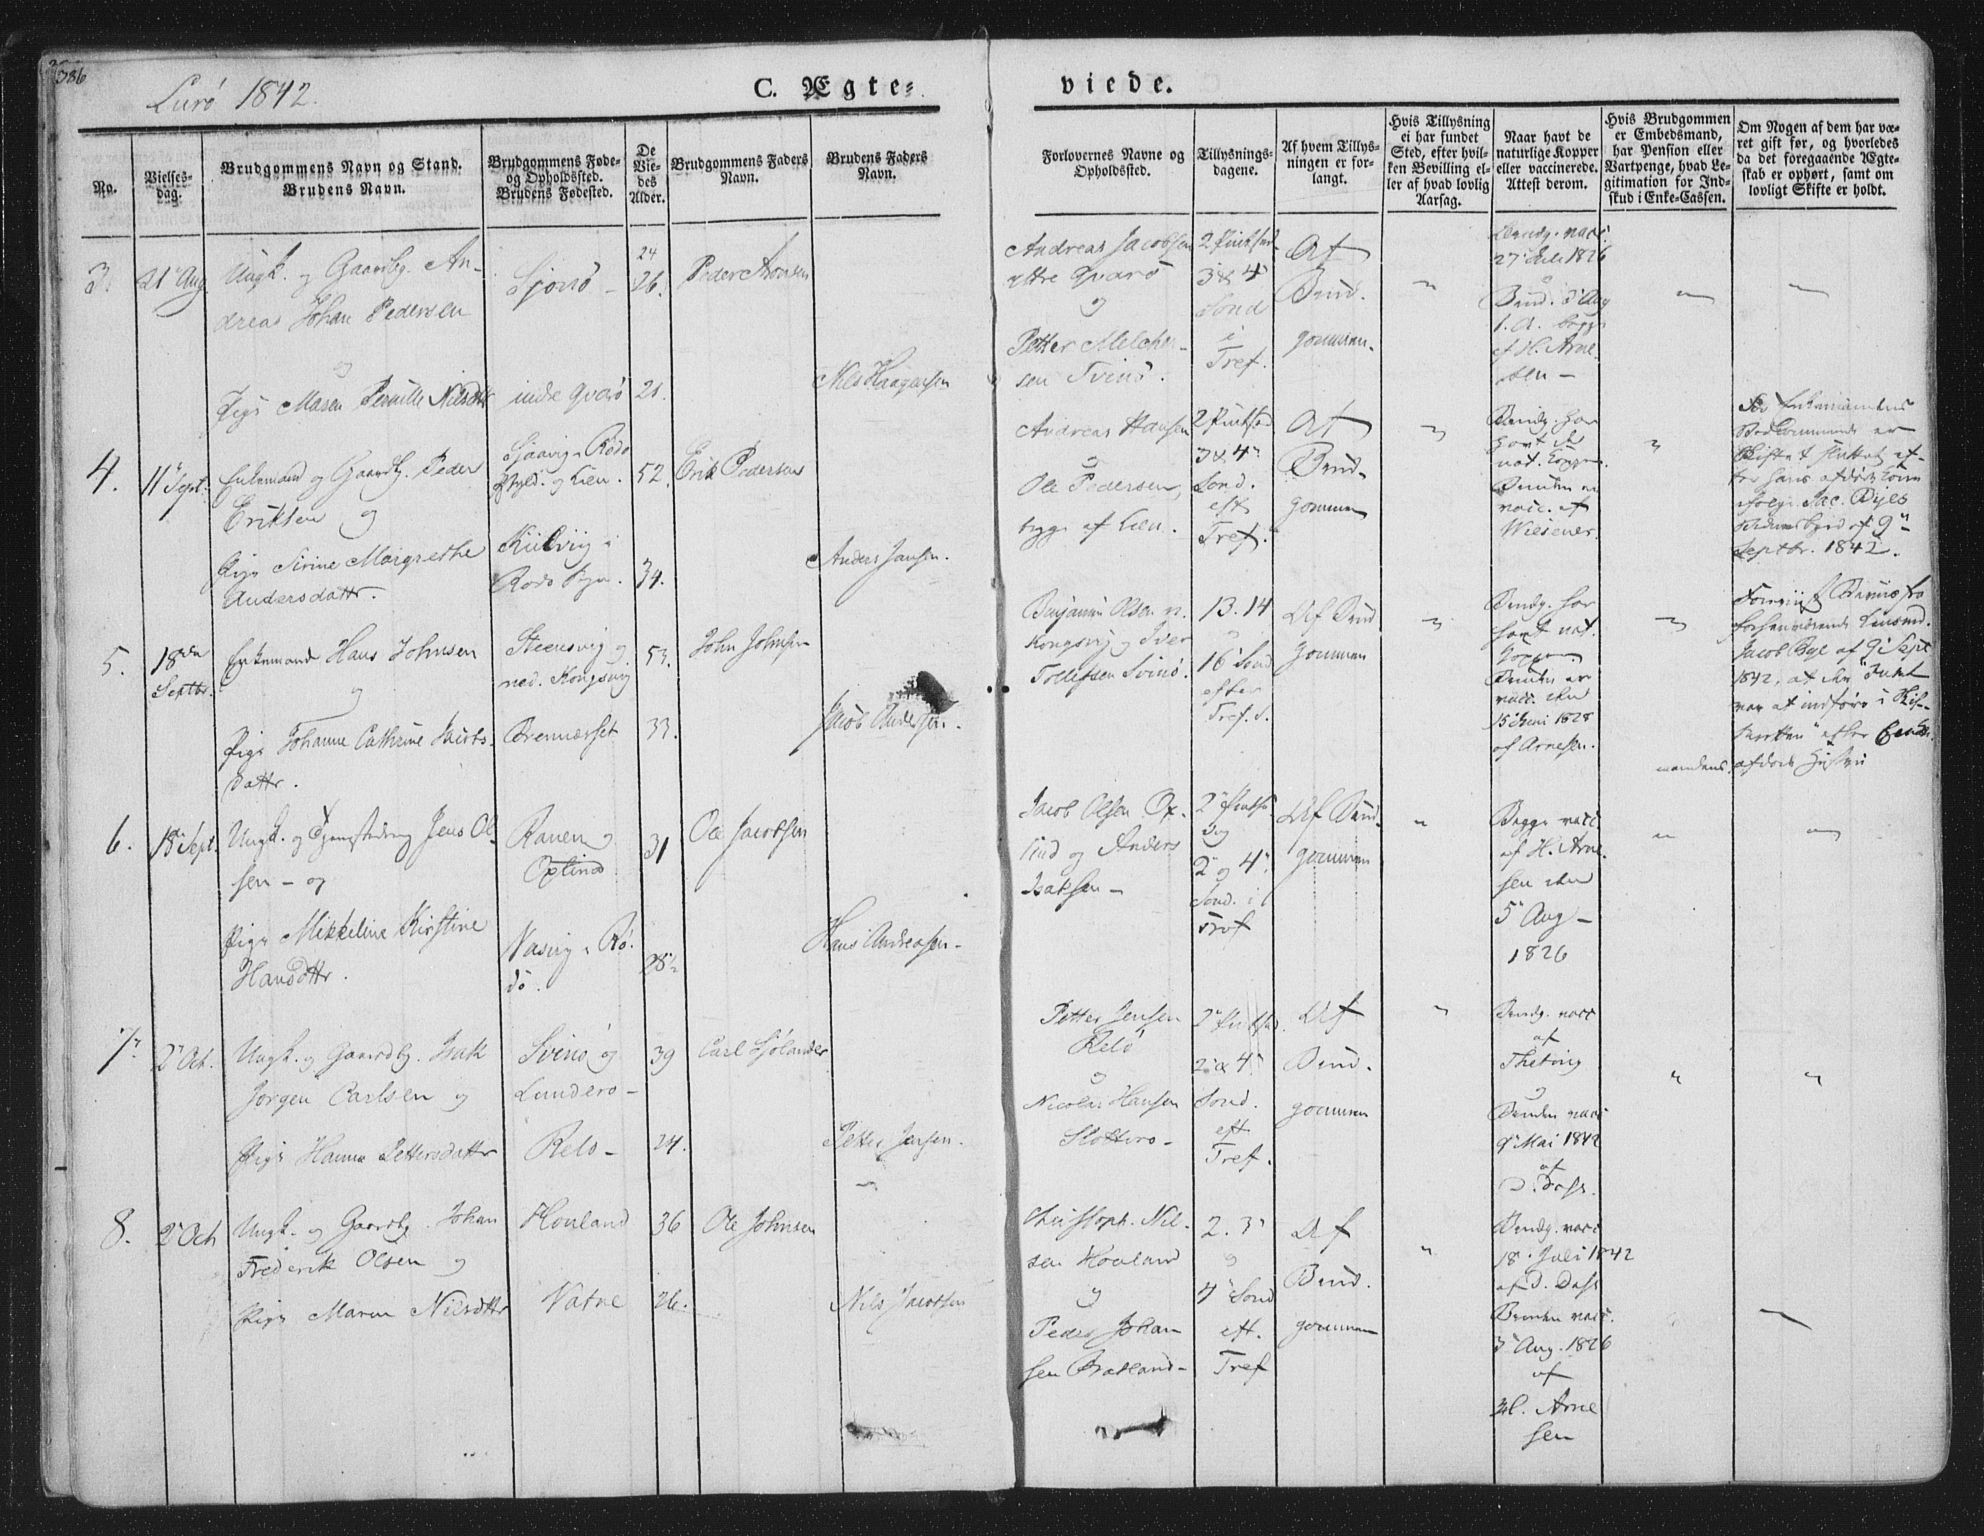 386
Lurö 1842.
C. Ægte=
viede.
No.
Vielses-
dag.
Brudgommens Navn og Stand.
Brudens Navn.
Brudgommens Føde-
og Opholdssted.
Brudens Fødested.
De
Vie-
des
Alder.
Brudgommens Faders
Navn.
Brudens Faders
Navn.
Forlovernes Navne og
Opholdssted.
Tillysnings-
dagene.
Af hvem Tillys-
ningen er for-
langt.
Hvis Tillysning
ei har fundet
Sted, efter hvil-
ken Bevilling el-
ler af hvad lovlig
Aarsag.
Naar havt de
naturlige Kopper
eller vaccinerede.
Attest derom.
Hvis Brudgommen
er Embedsmand,
har Pension eller
Vartpenge, hvad Le-
gitimation for Ind-
skud i Enke-Cassen.
Om Nogen af dem har væ-
ret gift før, og hvorledes
da det foregaaende Ægte-
skab er ophørt, samt om
lovligt Skifte er holdt.
3.
21 Aug.
Ungk. og Gaardbg. An-
dreas Johan Pedersen
og
Pige Maren Pernille Nilsdttr
Sjonö -
indre Qvarö
24
26.
21.
Peder Aronsen
Nils Haagensen
Andreas Jacobsen
ytre Qvarö
og
Petter Melcher-
sen Svinö.
3 & 4
Sond
i
Tref.
Af
Brud-
gommen.
Brudg. vacc.
27 Juli 1826
Brud. 5 Aug
af H. Arne-
sen -
4.
11 Sept.
Enkemand og Gaardbg. Peder
Eriksen og
Pige Sirine Margrethe
Andersdattr.
Sjaavig i Rödö
og Lien.
Kilvig i
Rödö
52.
34.
Erik Pedersen
Anders Jansen.
Andreas Hansen
og
Ole Pedersen,
begge af Lien.
3 & 4
Sond.
eft
Tref.
Af
Brud-
gommen
Brudg. har
havt de
nat. Kopper.
Bruden er
vacc. af
Wiesener.
For Enkemandens
Vedkommende er
Skiftet sluttet ef-
ter hans afdöde Kone
Septbr. 1842.
5.
18de
Septbr.
Enkemand Hans Johnsen
og
Pige Johanne Cathrine Jacobs-
dattr.
Steensvig og
ned. Kongsvig
Brennesset
53.
33.
John Johnsen
Jacob Andersen.
Benjamin Olsen n.
Kongsvig og Iver
Tollefsen Svinö.
13. 14
og
16 Sond
efter
Tref.
Af Brud
gommen
Brudg. har
havt nat.
Kopper.
Bruden er
vacc. den
15 Juni 1828
af Arnesen.
Jacob Bye af 9 Sept
1842, at den Intet
var at indföre i Skif-
teretten efter Enke-
mandens afdöde Hustru
6.
18 Sept.
Ungk. og Tjenestedreng Jens Ol-
sen - og
Pige Mikkeline Kirstine
Hansdttr.
Ranen og
Öxtind
Nasvig i Rö-
dö.
31
28½
Ole Jacobsen
Hans Andreasen -
Jacob Olsen Öx-
tind og Anders
Isaksen -
og
2 og 4
Sond. i
Tref
Af Brud-
gommen
Begge vacc
af H. Arne-
sen den
5 Aug -
1826
7.
2 Oct.
Ungk. og Gaardbg. Isak
Jörgen Carlsen og
Pige Hanna Pettersdattr
Svinö og
Lunderö -
Relö -
39
24.
Carl Sjölander
Petter Jensen.
Petter Jensen
Relö
og
Nicolai Hansen
Slotterö -
2 & 4
Sond.
eft
Tref.
Af
Brud-
gommen
Brudg. vacc
af
Bruden vacc
9 Mai 1842
af
D. Dass.
8.
2 Oct
Ungk. og Gaardbg. Johan
Frederik Olsen og
Pige Maren Nilsdttr
Hovland
Vatne
36
26.
Ole Johnsen
Nils Jacobsen
Christoph. Nil-
sen Hovland
og
Peder Johan-
sen Bratland -
2. 3
og
4 Sond
eft.
Tref
Af
Brud-
gommen
Brudg. vacc
18 Juli 1842
af D. Dass
Bruden vacc.
3 Aug. 1826
af
H. Arne
sen